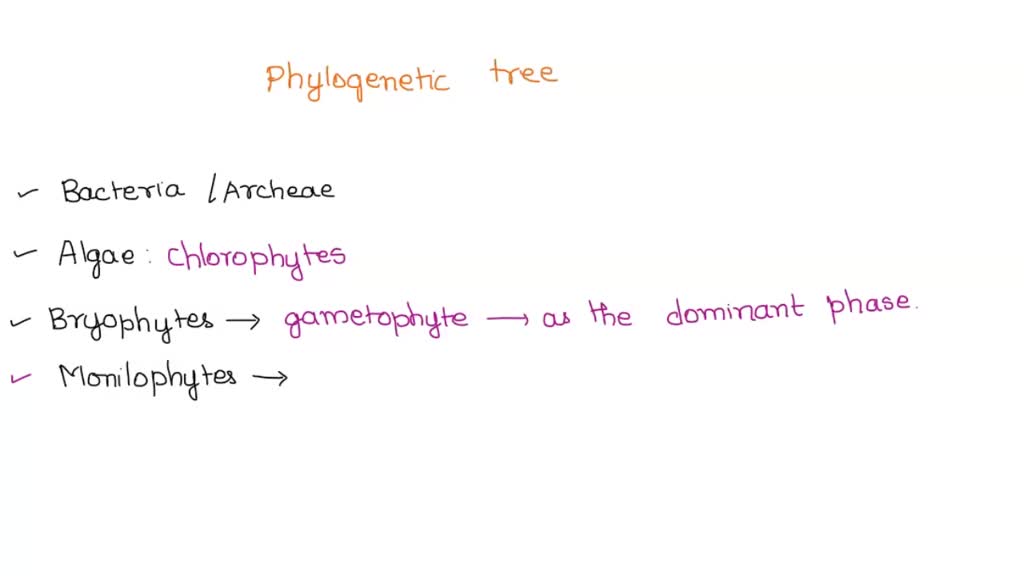 Phylogenetic tree
✓ Bacteria / Archeae
✓ Algae : Chlorophytes
✓ Bryophytes → gametophyte → as the dominant phase.
✓ Monilophytes →